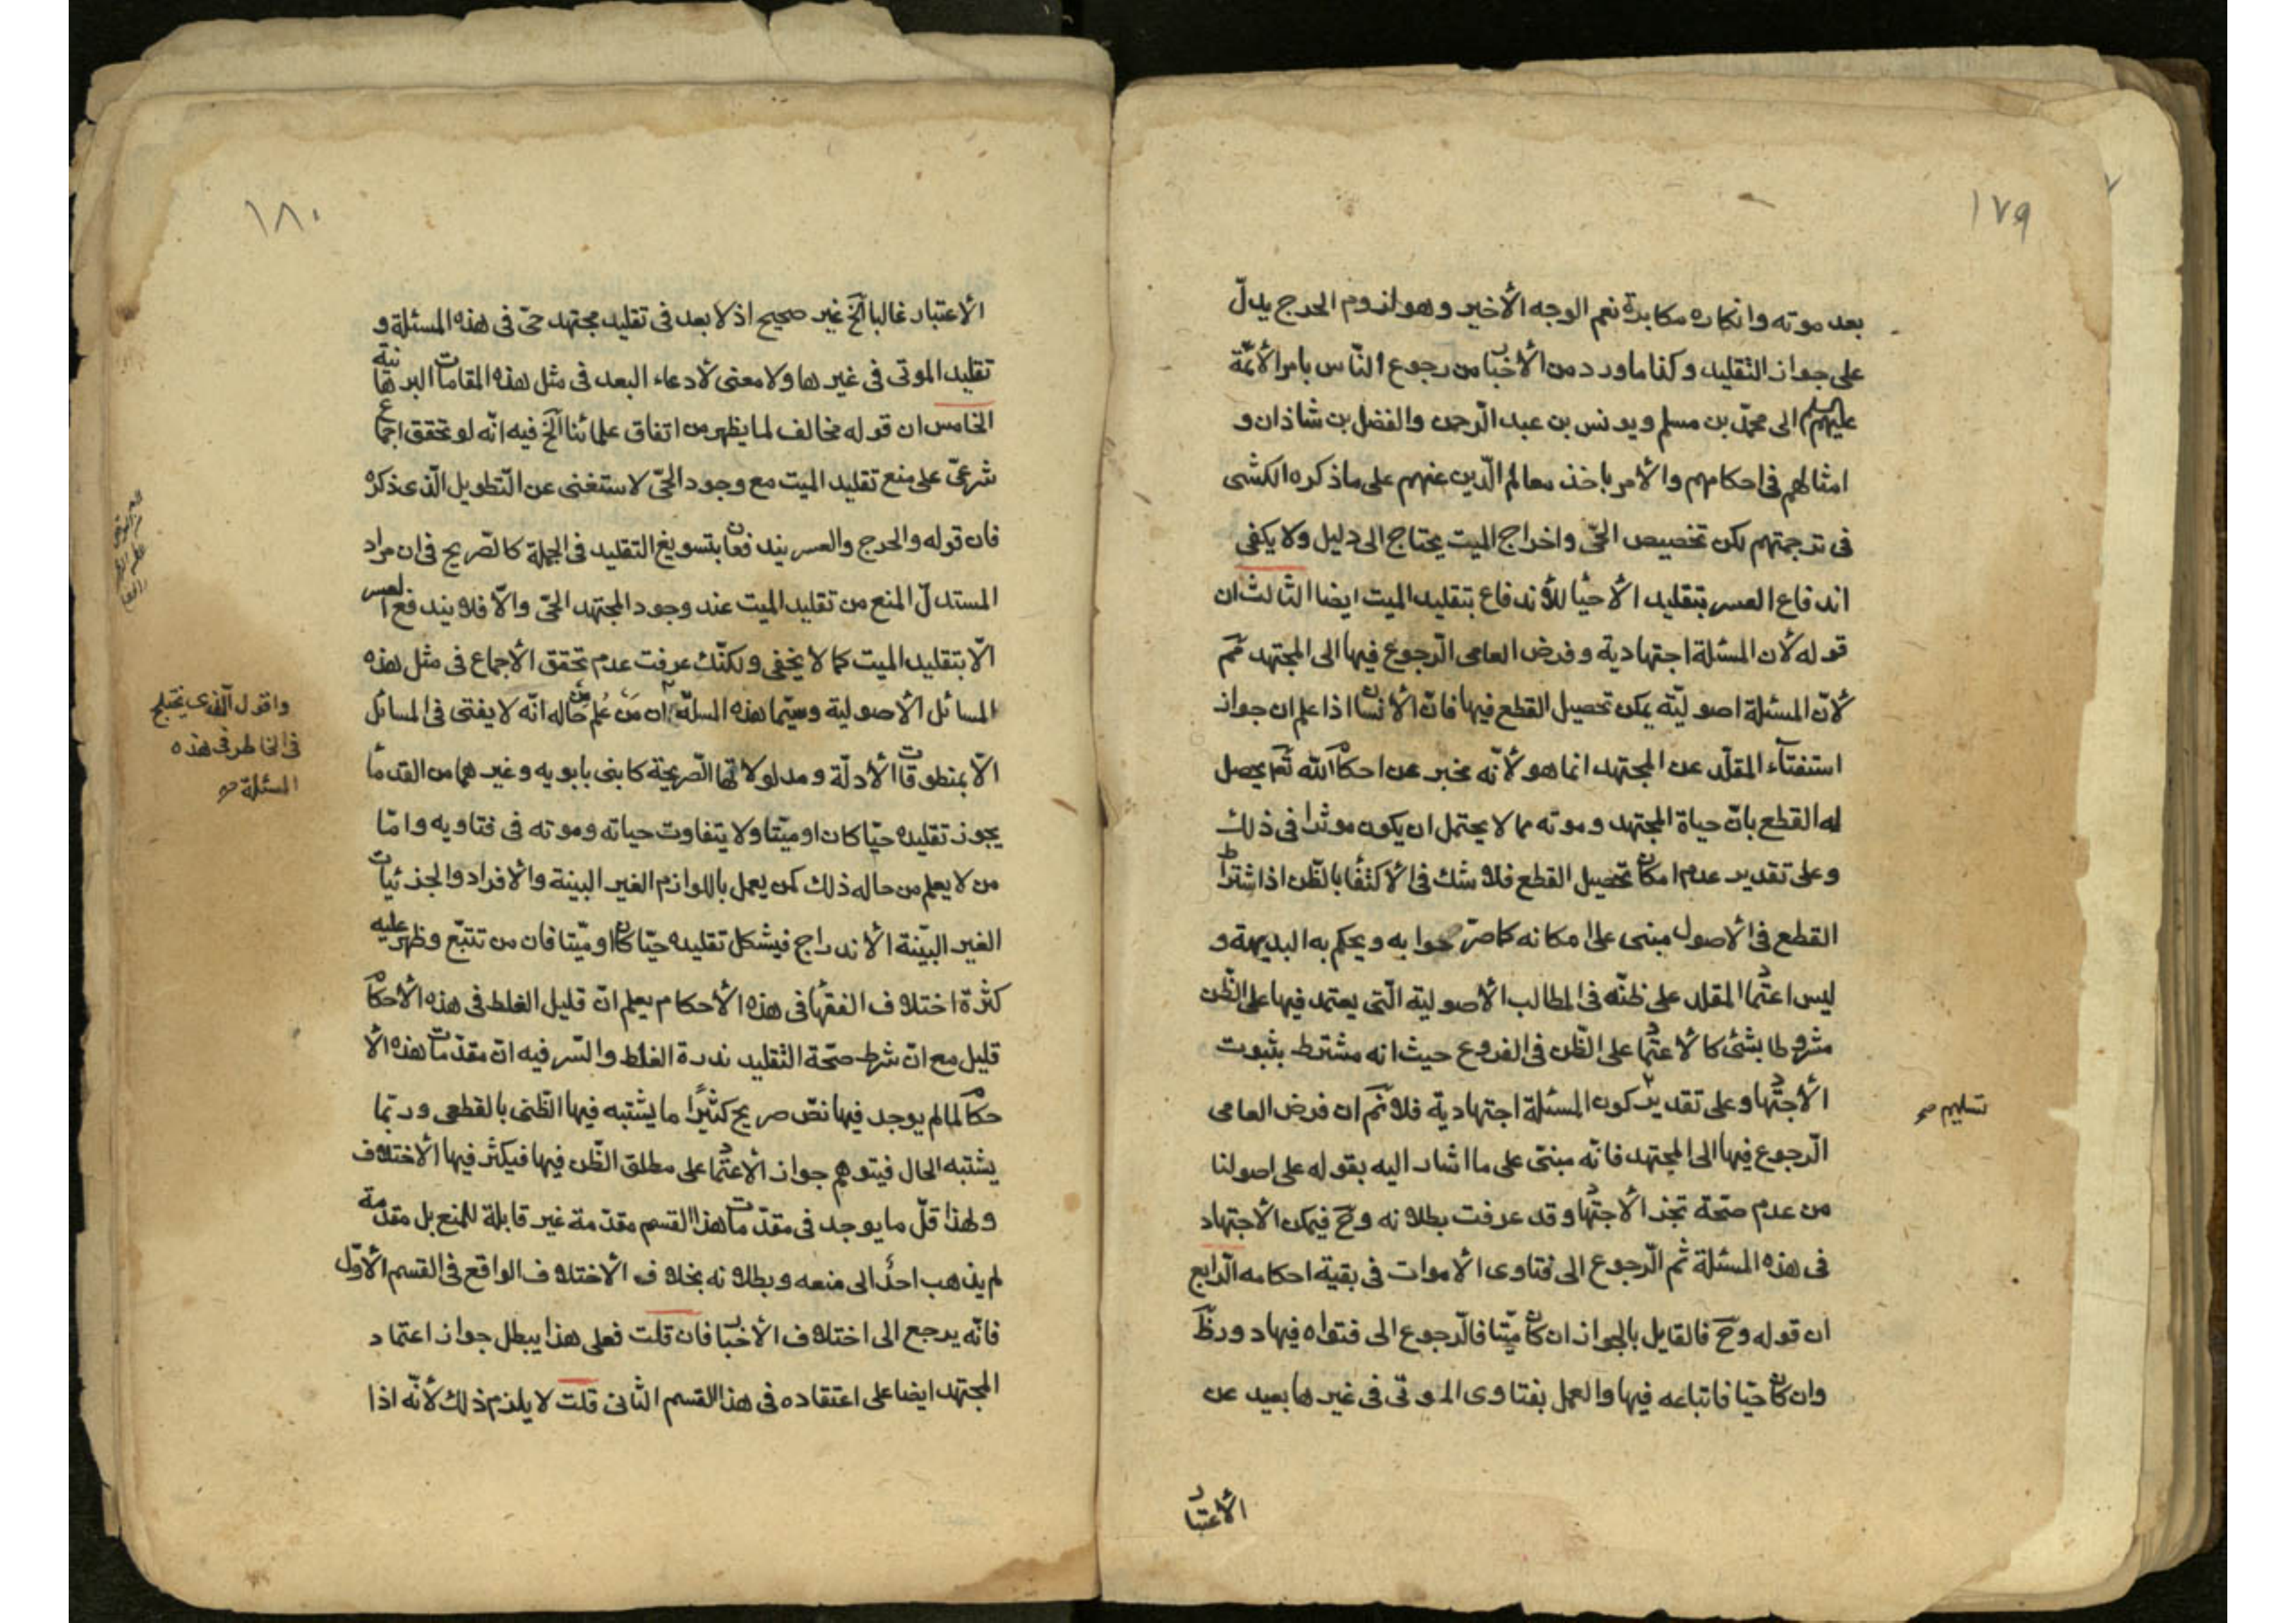 ١٧٩
بعد موته وانكاره مكابرة نعم الوجه الأخير وهو لزوم الحرج يدلّ
على جواز التقليد وكذا ما ورد من الأخبا من رجوع النّاس بامر الأئمّة
عليهم السلم الى محمّد بن مسلم ويونس بن عبد الرّحمن والفضل بن شاذان و
امثالهم في احكامهم والأمر باخذ معالم الدّين عنهم على ما ذكره الكشى
في ترجمتهم لكن تخصيص الحىّ واخراج الميت يحتاج الى دليل ولا يكفى
اندفاع العسر بتقليد الأحيا للأندفاع بتقليد الميت ايضا الثالث ان
قوله لأن المسئلة اجتهادية وفرض العامى الرّجوع فيها الى المجتهد مم
لأنّ المسئلة اصوليّة يمكن تحصيل القطع فيها فانّ الأنسان اذا علم ان جواز
استفتاء المقلّد عن المجتهد انما هو لأنّه مخبر عن احكام الله تعم يحصل
له القطع بانّ حياة المجتهد وموته مما لا يحتمل ان يكون موثرا في ذلك
وعلى تقدير عدم امكان تحصيل القطع فلا شك في الأكتفا بالظّن اذ اشتراط
القطع في الأصول مبنى على امكانه كما صرّحوا به ويحكم به البديهة و
ليس اعتماد المقلد على ظنّه في المطالب الأصولية الّتى يعتمد فيها على الظّن
مشروطا بشئ كالأعتماد على الظّن في الفروع حيث انه مشترط بثبوت
الأجتهاد وعلى تقدير كون المسئلة اجتهادية فلا نم ان فرض العامى
تسليم صح
الرّجوع فيها الى المجتهد فانّه مبنى على ما اشار اليه بقوله على اصولنا
من عدم صحّة تجز الأجتهاد وقد عرفت بطلانه وح فيمكن الأجتهاد
في هذه المسئلة ثم الرّجوع الى فتاوى الأموات في بقية احكامه الرّابع
ان قوله وح فالقايل بالجواز ان كان ميّتا فالرّجوع الى فتواه فيها دور ظ
وان كان حيّا فاتباعه فيها والعمل بفتاوى الموتى في غيرها بعيد عن
الأعتبار
١٨٠
الأعتبار غالبا الخ غير صحيح اذ لا بعد في تقليد مجتهد حىّ في هذه المسئلة و
تقليد الموتى في غيرها ولا معنى لأدعاء البعد في مثل هذه المقامات البرهانية
الخامس ان قوله مخالف لما يظهر من اتفاق علمائنا الخ فيه انّه لو تحقق اجماع
شرعىّ على منع تقليد الميت مع وجود الحىّ لاستغنى عن التّطويل الّذى ذكره
فان قوله والحرج والعسر يندفعان بتسويغ التقليد في الجملة كالصّريح في ان مراد
المستدلّ المنع من تقليد الميت عند وجود المجتهد الحىّ والّا فلا يندفع العسر
الّا بتقليد الميت كما لا يخفى ولكنّك عرفت عدم تحقق الأجماع في مثل هذه
المسائل الأصولية وسيّما هذه المسلة ان من علم من حاله انّه لا يفتى في المسائل
واقول الّذى يختلج
في الخاطر في هذه
المسئلة صح
الّا بمنطوقات الأدلّة ومدلولاتها الصّريحة كابنى بابويه وغيرهما من القدما
يجوز تقليده حيّا كان او ميّتا ولا يتفاوت حياته وموته في فتاويه وامّا
من لا يعلم من حاله ذلك كمن يعمل باللوازم الغير البينة والافراد والجزئيات
الغير البيّنة الأندراج فيشكل تقليده حيّا كان او ميّتا فان من تتبّع وظهر عليه
كثرة اختلاف الفقها في هذه الأحكام يعلم انّ قليل الغلط في هذه الأحكام
قليل مع انّ شرط صحّة التقليد ندرة الغلط والسّر فيه انّ مقدّمات هذه الأ
حكام لما لم يوجد فيها نصّ صريح كثيرًا ما يشتبه فيها الظّنى بالقطعى وربّما
يشتبه الحال فيتوهم جواز الأعتماد على مطلق الظّن فيها فيكثر فيها الأختلاف
ولهذا قلّ ما يوجد في مقدّمات هذا القسم مقدّمة غير قابلة للمنع بل مقدّمة
لم يذهب احدٌ الى منعه وبطلانه بخلاف الأختلاف الواقع في القسم الأوّل
فانّه يرجع الى اختلاف الأخبار فان قلت فعلى هذا يبطل جواز اعتماد
المجتهد ايضا على اعتقاده في هذا القسم الثّانى قلت لا يلزم ذلك لأنّه اذا